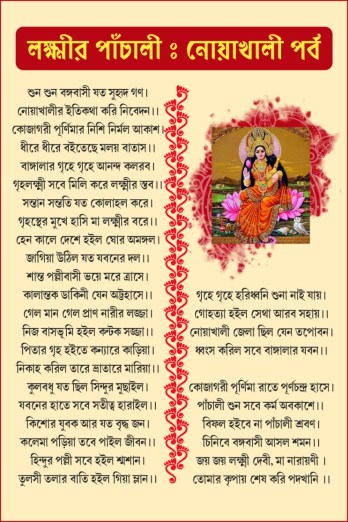 লক্ষ্মীর পাঁচালী : নোয়াখালী পর্ব
শুন শুন বঙ্গবাসী যত সুহৃদ গণ।
নোয়াখালীর ইতিকথা করি নিবেদন।।
কোজাগরী পূর্ণিমার নিশি নির্মল আকাশ।
ধীরে ধীরে বইতেছে মলয় বাতাস।।
বাঙ্গালার গৃহে গৃহে আনন্দ কলরব।
গৃহলক্ষ্মী সবে মিলি করে লক্ষ্মীর স্তব।।
সন্তান সন্ততি যত কোলাহল করে।
গৃহস্থের মুখে হাসি মা লক্ষ্মীর বরে।।
হেন কালে দেশে হইল ঘোর অমঙ্গল।
জাগিয়া উঠিল যত যবনের দল।।
শান্ত পল্লীবাসী ভয়ে মরে ত্রাসে।
কালান্তক ডাকিনী যেন অট্টহাসে।।
গেল মান গেল প্রাণ নারীর লজ্জা।
নিজ বাসভূমি হইল কন্টক সজ্জা।।
পিতার গৃহ হইতে কন্যারে কাড়িয়া।
নিকাহ করিল তারে ভ্রাতারে মারিয়া।।
কুলবধু যত ছিল সিন্দুর মুছাইল।
যবনের হাতে সবে সতীত্ব হারাইল।।
কিশোর যুবক আর যত বৃদ্ধ জন।
কলেমা পড়িয়া তবে পাইল জীবন।।
হিন্দুর পল্লী সবে হইল শ্মশান।
তুলসী তলার বাতি হইল গিয়া ম্লান।।
গৃহে গৃহে হরিধ্বনি শুনা নাই যায়।
গোহত্যা হইল সেথা আরব সহায়।।
নোয়াখালী জেলা ছিল যেন তপোবন।
ধ্বংস করিল সবে বাঙ্গালার যবন।।
কোজাগরী পূর্ণিমা রাতে পূর্ণচন্দ্র হাসে।
পাঁচালী শুন সবে কর্ম অবকাশে।।
বিফল হইবে না পাঁচালী শ্রবণ।
চিনিবে বঙ্গবাসী আসল শমন।।
জয় জয় লক্ষ্মী দেবী, মা নারায়ণী ।
তোমার কৃপায় শেষ করি পদখানি ।।